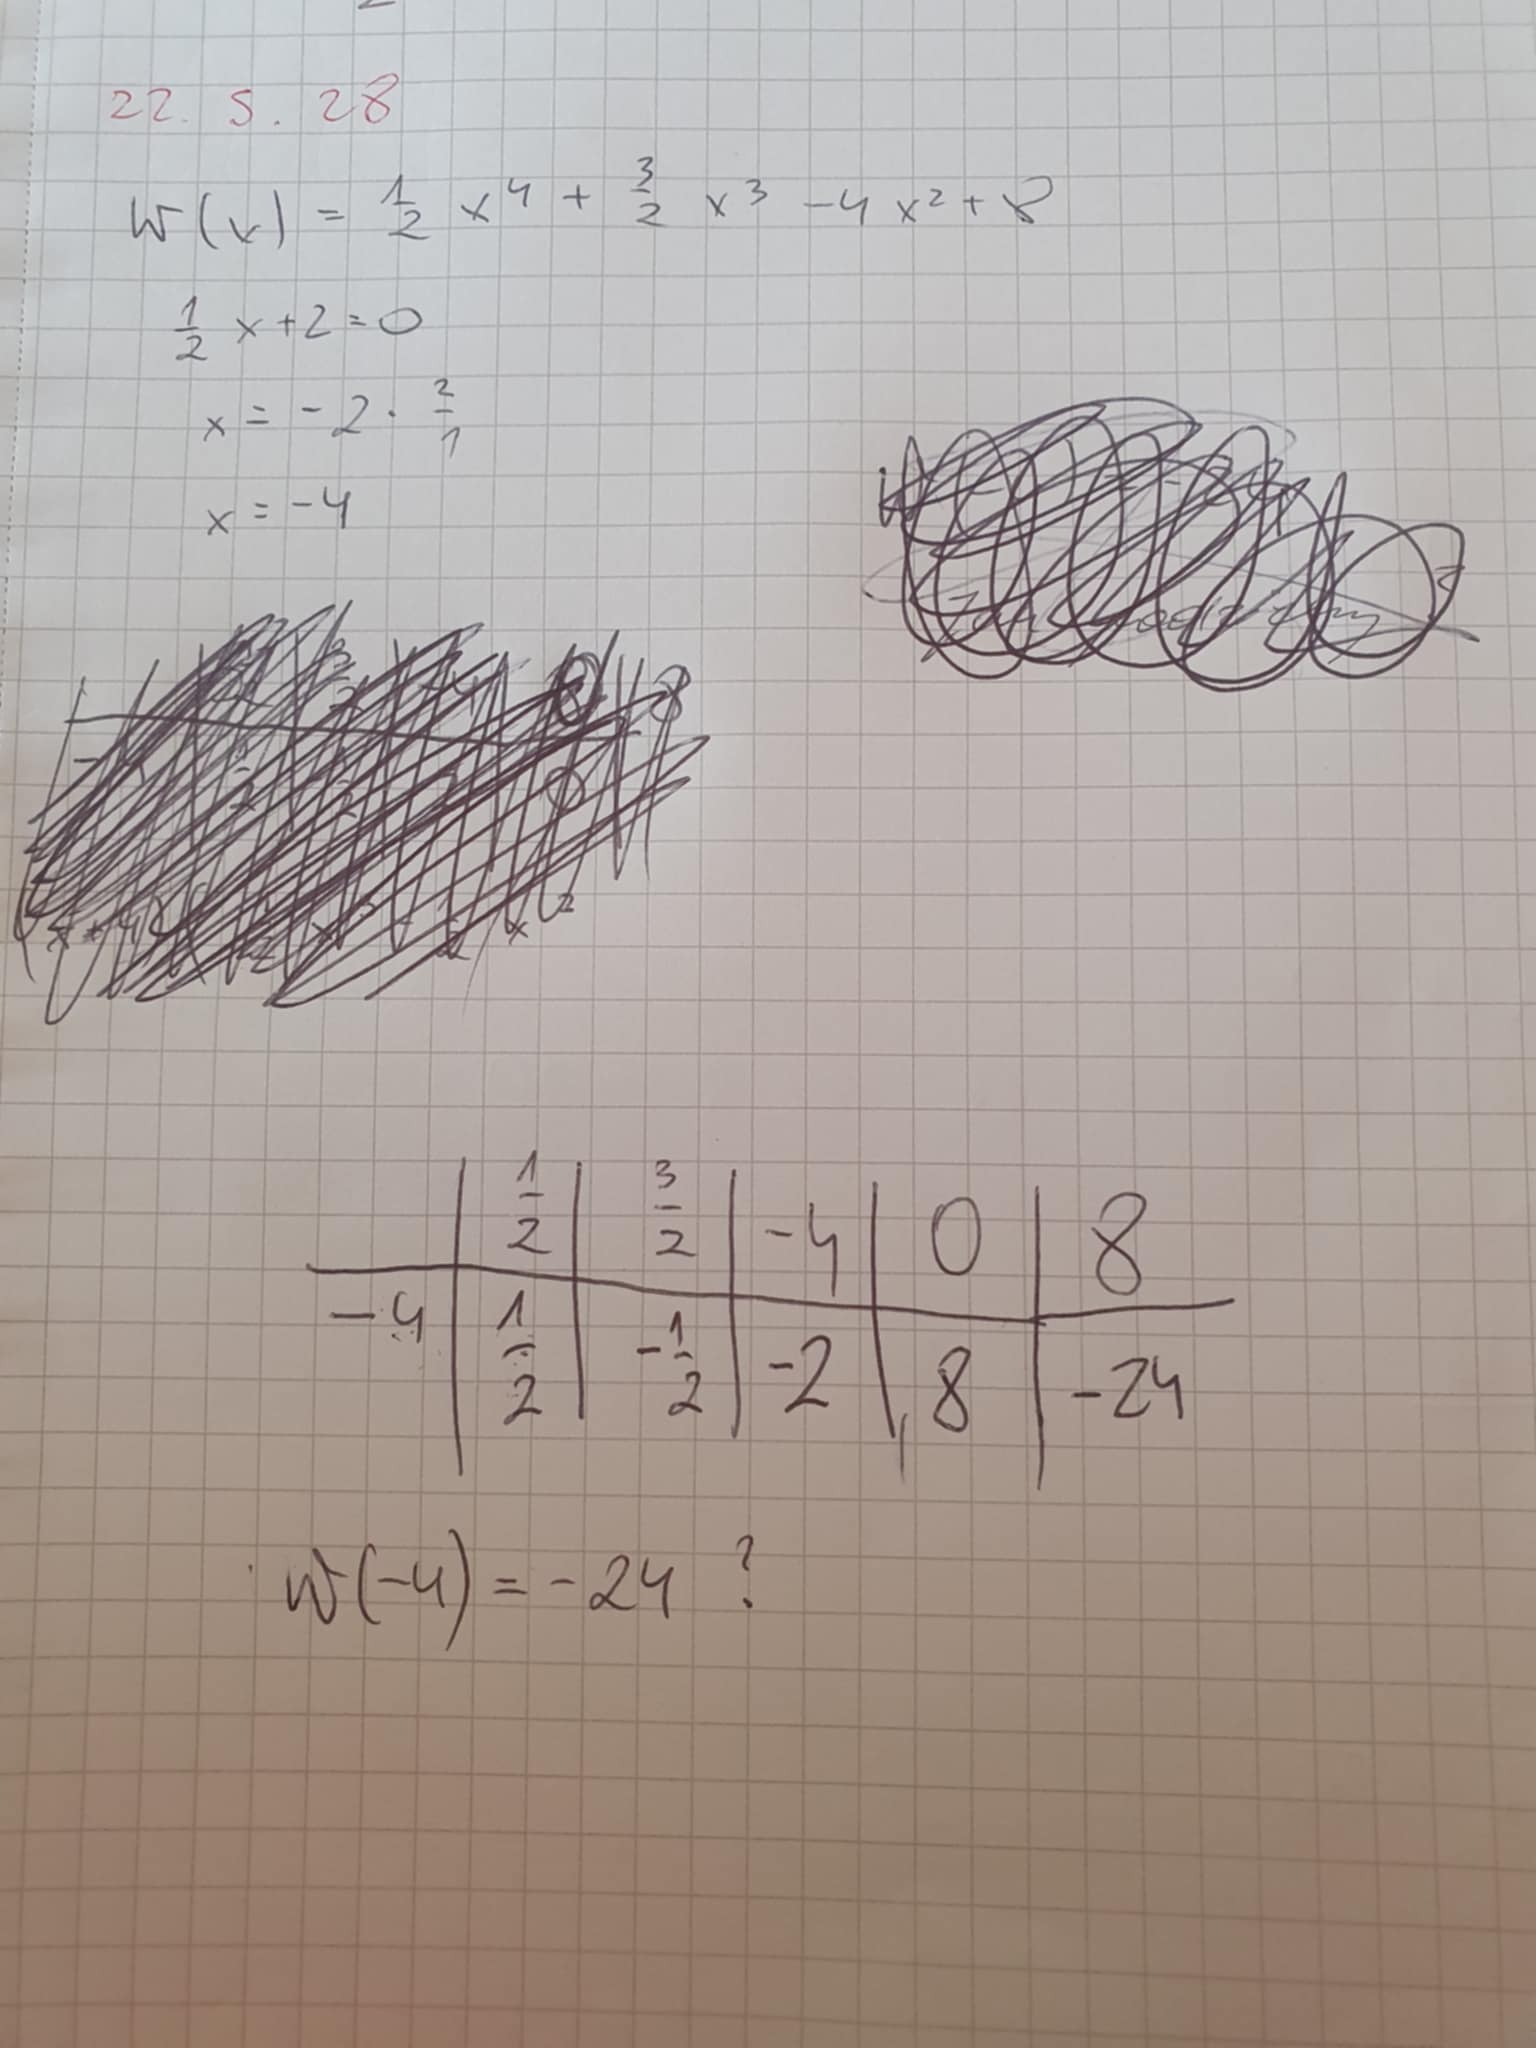 22. S. 28
W(x) = 1/2 x^4 + 3/2 x^3 - 4x^2 + 8
1/2 x + 2 = 0
x = -2 · 2/1
x = -4
1/2 | 3/2 | -4 | 0 | 8
-4 | 1/2 | -1/2 | -2 | 8 | -24
W(-4) = -24 ?